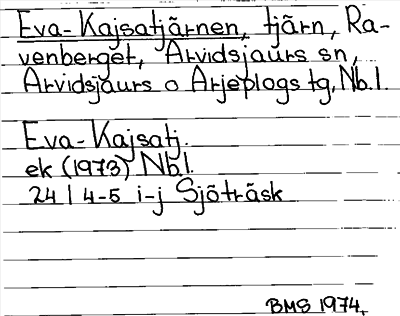 Eva-Kajsatjärnen, tjärn, Ra-
venberget, Arvidsjaurs sn,
Arvidsjaurs o Arjeplogs tg, Nb.l.
Eva-Kajsatj.
ek (1973) Nb.l.
24 I 4-5 i-j Sjöträsk
BMS 1974.